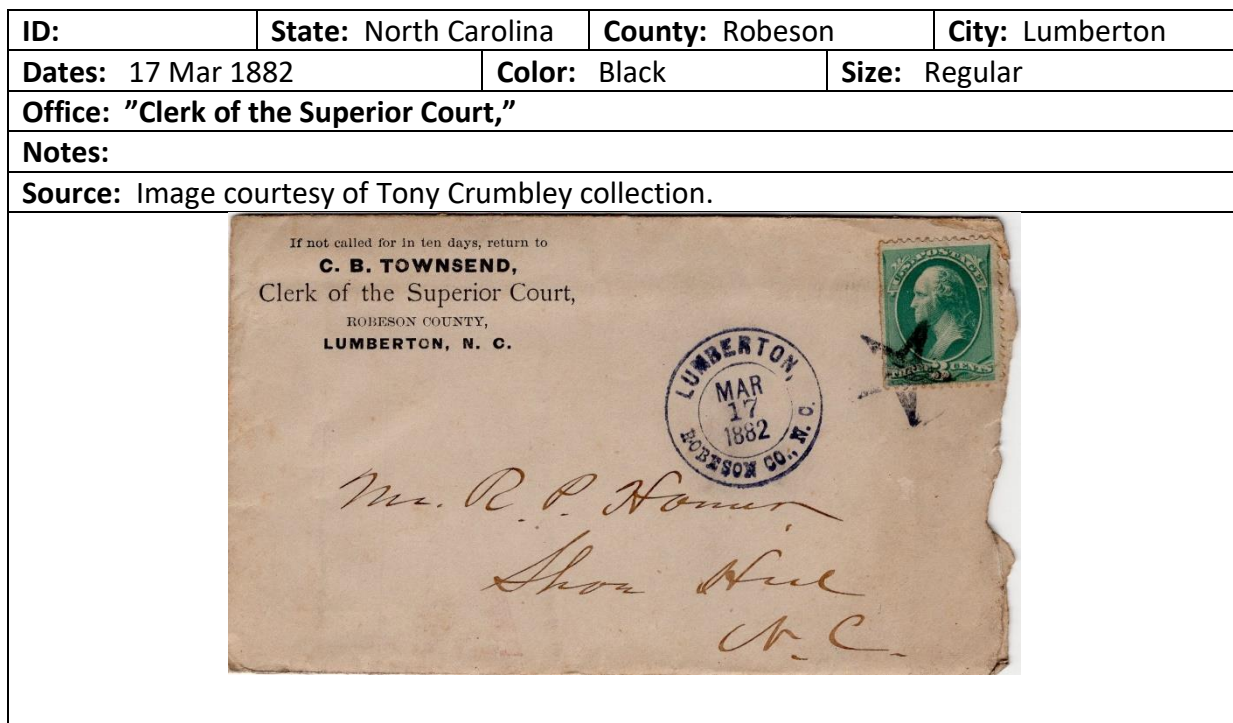 ID: State: North Carolina County: Robeson City: Lumberton
Dates: 17 Mar 1882 Color: Black Size: Regular
Office: ”Clerk of the Superior Court,”
Notes:
Source: Image courtesy of Tony Crumbley collection.
If not called for in ten days, return to
C. B. TOWNSEND,
Clerk of the Superior Court,
ROBESON COUNTY,
LUMBERTON, N. C.
U.S. POSTAGE
3 CENTS
LUMBERTON,
MAR
17
1882
ROBESON CO., N. C.
Mr. R. P.
N. C.